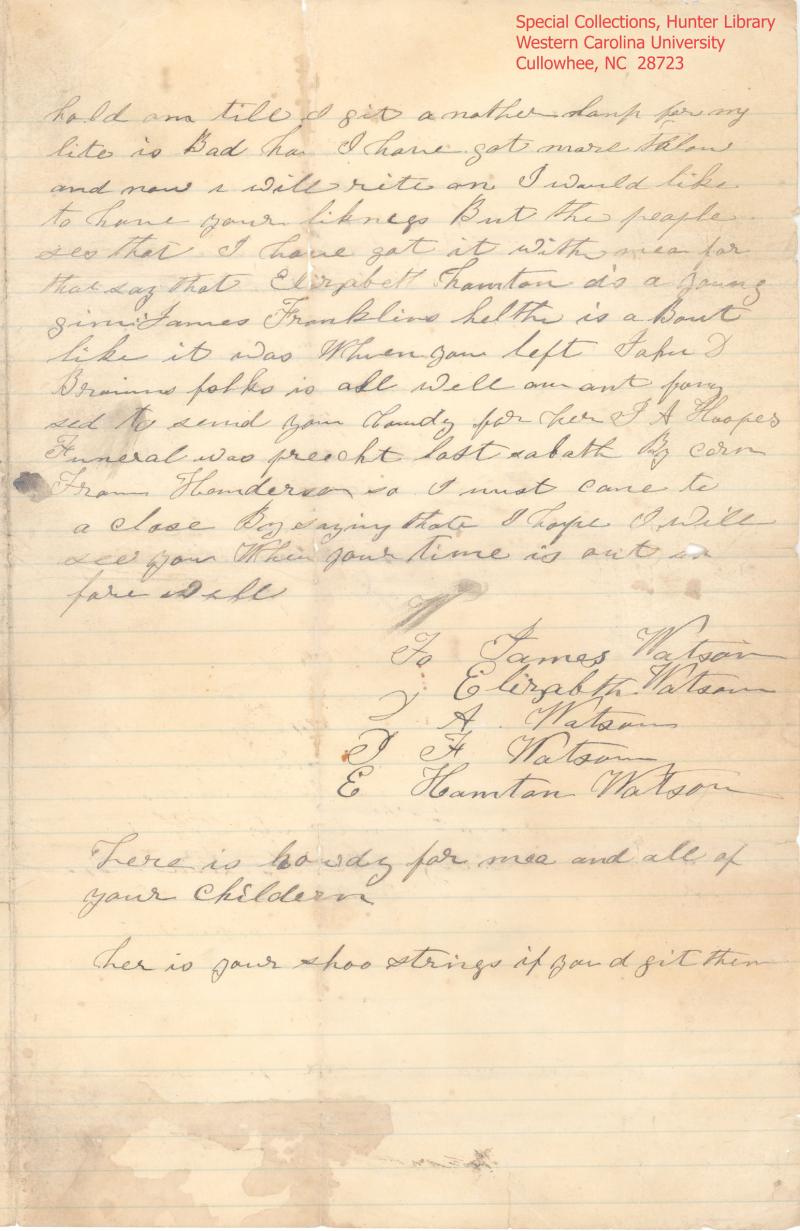 Special Collections, Hunter Library
Western Carolina University
Cullowhee, NC 28723
hold on till I git a nother for my
lite is Bad ha I have got more
and now i will rite on I would like
to have your liknegs But the people
ses that I have got it with mea for
tha say that Elizabett Hamton is a young
James Franklins helth is a Bout
like it was When you left John D
folks is all well our ant
sed to send you howdy for her J A Hooper
Funeral was preecht last sabath By corn
From Henderson so I must come to
a close Boy saying that I hope I will
see you When your time is out so
fare well
To James Watson
Elizabth Watson
J A Watson
J F Watson
E Hamton Watson
here is howdy for mea and all of
your Childern
her is your shoo strings if you d git them